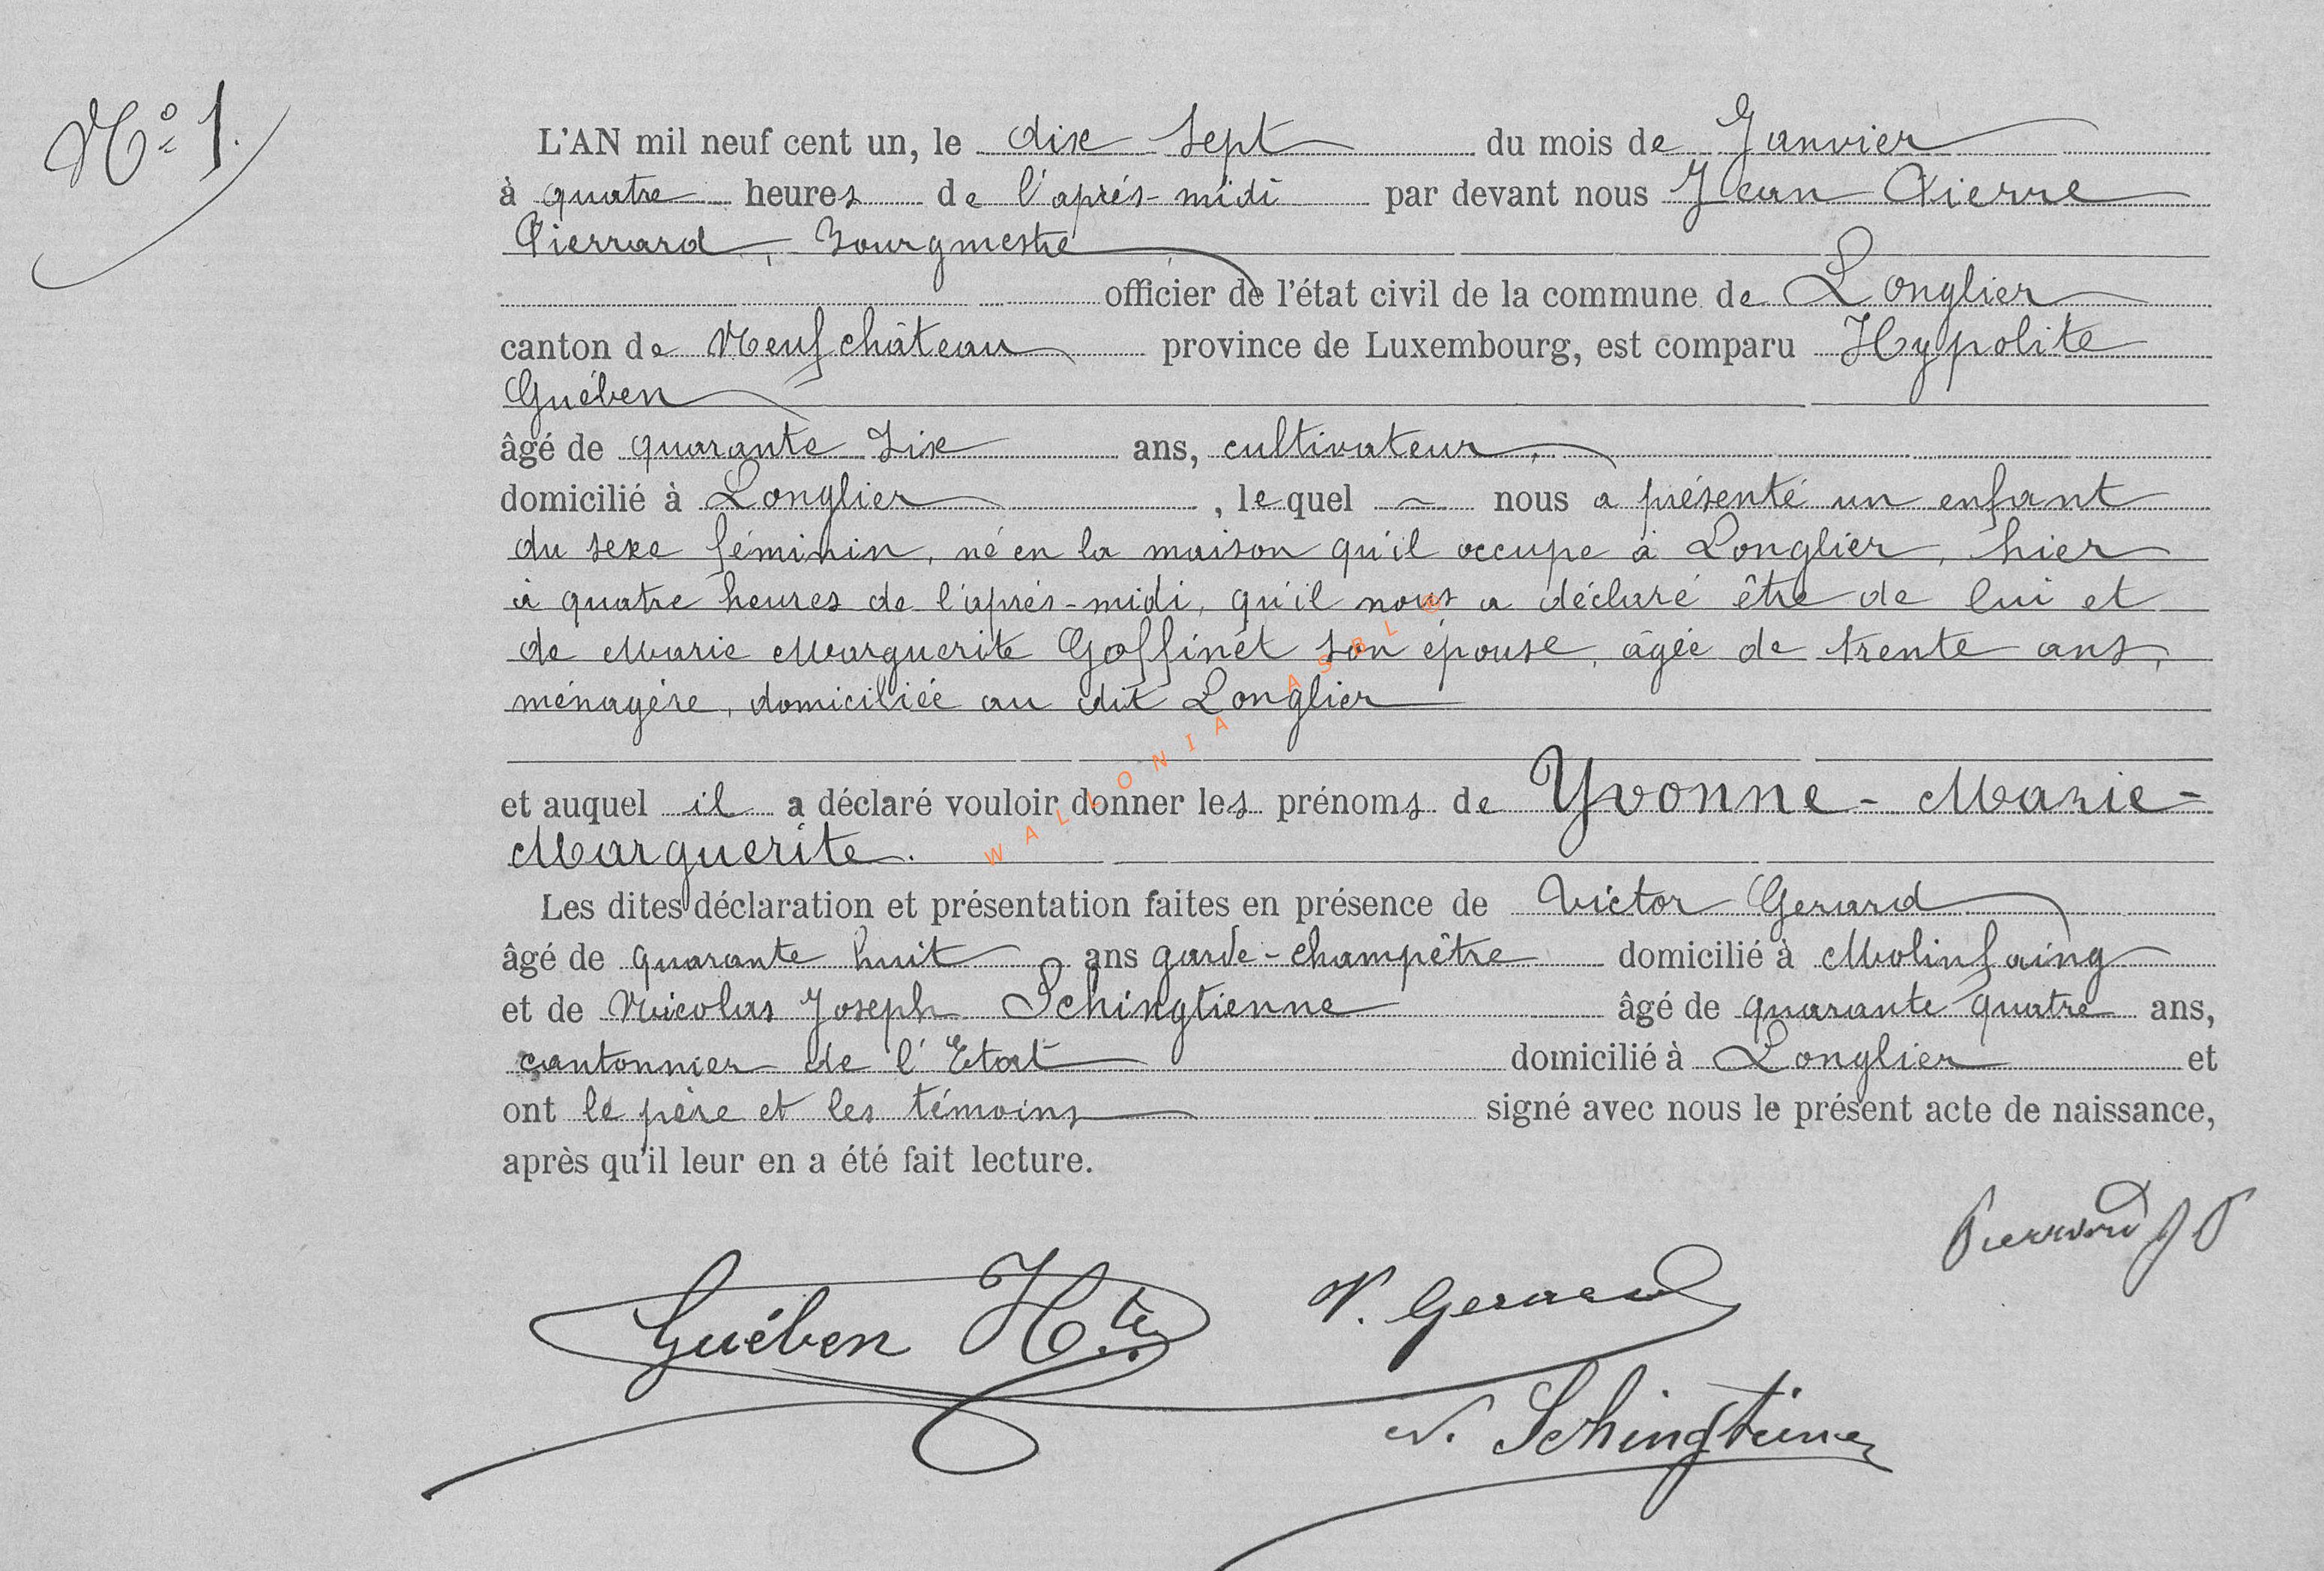 N° 1.
L'AN mil neuf cent un, le dix sept du mois de Janvier
à quatre heures de l'après-midi par devant nous Jean Pierre
Pierrard, Bourgmestre
officier de l'état civil de la commune de Longlier
canton de Neufchâteau province de Luxembourg, est comparu Hypolite
Guében
âgé de quarante six ans, cultivateur,
domicilié à Longlier, lequel ~ nous a présenté un enfant
du sexe féminin, né en la maison qu'il occupe à Longlier, hier
à quatre heures de l'après-midi, qu'il nous a déclaré être de lui et
de Marie Marguerite Goffinet son épouse, âgée de trente ans,
ménagère, domiciliée au dit Longlier
et auquel il a déclaré vouloir donner les prénoms de Yvonne-Marie-
Marguerite.
Les dites déclaration et présentation faites en présence de Victor Gerard
âgé de quarante huit ans garde-champêtre domicilié à Molinfaing
et de Nicolas Joseph Schingtienne âgé de quarante quatre ans,
cantonnier de l'Etat domicilié à Longlier et
ont le père et les témoins signé avec nous le présent acte de naissance,
après qu'il leur en a été fait lecture.
Pierrard J P
Guében H.te V. Gerard
N. Schingtienne
WALLONIA ASBL ©